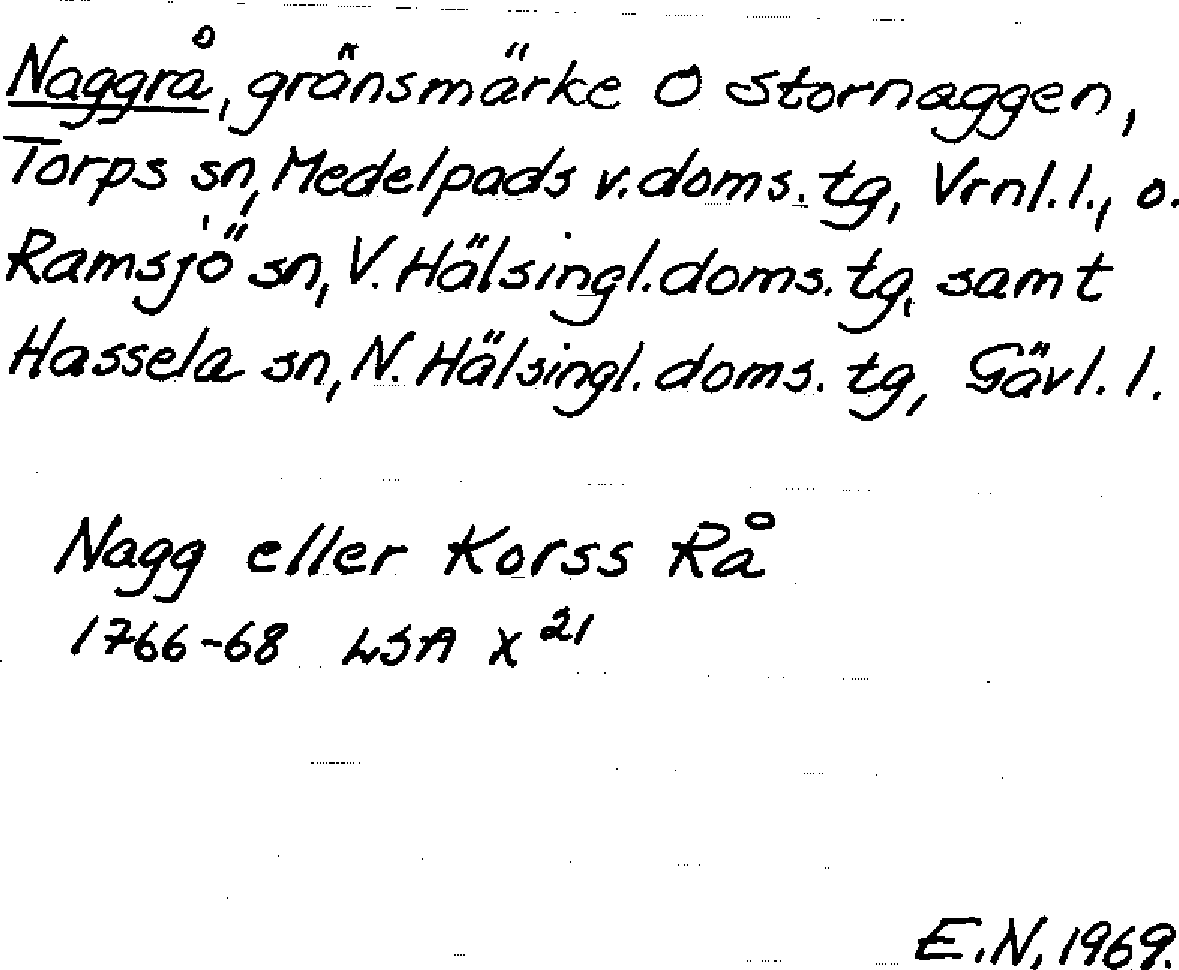 Naggrå, gränsmärke O Stornaggen,
Torps sn, Medelpads v. doms. tg, Vrnl. l., o.
Ramsjö sn, V. Hälsingl. doms. tg, samt
Hassela sn, N. Hälsingl. doms. tg, Gävl. l.
Nagg eller Korss Rå
1766-68 LSA X 21
E.N, 1969.